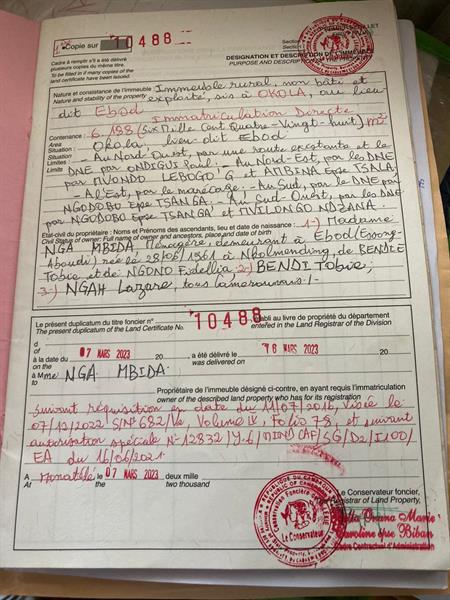 Copie sur 10488
Cadre à remplir s'il a été délivré
plusieurs copies du même titre.
To be filled in if many copies of the
land certificate have been issued.
Section
DESIGNATION ET DESCRIPTION DE L'IMMEUBLE
Nature et consistance de l'immeuble Immeuble rural, non bâti et
Nature and stability of the property exploité, sis à OKOLA, au lieu-
dit Ebod Immatriculation Directe
Contenance : 6.188 (Six Mille Cent Quatre-Vingt-huit) m²
Area
Situation : Okola, lieu-dit Ebod
Situation :
Limites : - Au Nord Ouest, par une route existante et le
Limits : DNE par ONDIGUI Paul; - Au Nord-Est, par les DNE
par MVONDO LEBOGO G et AMBINA Epse TSALA;
- A l'Est, par le marécage; - Au Sud, par le DNE par
NGODOBO Epse TSANGA. - Au Sud-Ouest, par les DNE
par NGODOBO Epse TSANGA et MVILONGO NDZANA.
Etat-civil du propriétaire : Noms et Prénoms des ascendants, lieu et date de naissance : 1-) Madame
Civil Status of owner: Full name of owner and ancestors, place and date of birth
NGA MBIDA (Ménagère, demeurant à Ebod (Essong-
née le 28/06/1961 à Nkolmending, de BENDE
Tobie et de NGONO Fidellia; 2-) BENDI Tobie;
3-) NGAH Lazare, tous camerounais/-
Le présent duplicatum du titre foncier n° 10488 établi au livre de propriété du département
The present duplicatum of the Land Certificate No. entered in the Land Registrar of the Division
d
of
à la date du 07 MARS 2023 20 , a été délivré le 16 MARS 2023 20
on the was delivered on
à Mme NGA MBIDA
to
Propriétaire de l'immeuble désigné ci-contre, en ayant requis l'immatriculation
owner of the described land property who has for its registration
suivant réquisition en date du 11/07/2016, visée le
07/12/2022 S/N° 682/Ve, Volume IV, Folio 78, et suivant
autorisation spéciale N° 12832/Y.6/MINDCAF/SG/D2/I100/
EA du 16/06/2021
A Monatélé, le 07 MARS 2023 deux mille
At the two thousand
Le Conservateur foncier,
Registrar of Land Property,
REPUBLIQUE DU CAMEROUN
Le Conservateur
Marie
Caroline épse Biban
Cadre Contractuel d'Administration